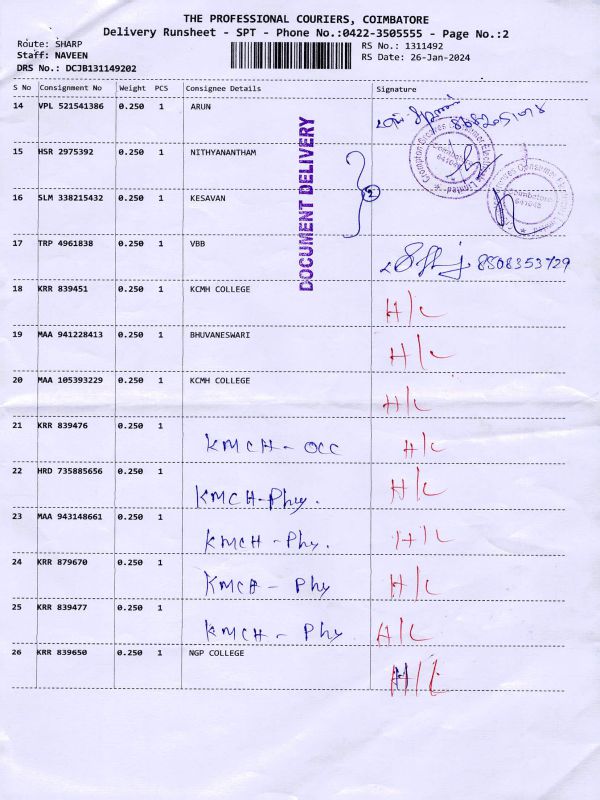 THE PROFESSIONAL COURIERS, COIMBATORE
Delivery Runsheet - SPT - Phone No.:0422-3505555 - Page No.:2
Route: SHARP
Staff: NAVEEN
DRS No.: DCJB131149202
RS No.: 1311492
RS Date: 26-Jan-2024
S No Consignment No Weight PCS Consignee Details Signature
14 VPL 521541386 0.250 1 ARUN
15 HSR 2975392 0.250 1 NITHYANANTHAM
16 SLM 338215432 0.250 1 KESAVAN
2
17 TRP 4961838 0.250 1 VBB 8508353729
DOCUMENT DELIVERY
18 KRR 839451 0.250 1 KCMH COLLEGE H/C
19 MAA 941228413 0.250 1 BHUVANESWARI H/C
20 MAA 105393229 0.250 1 KCMH COLLEGE H/C
21 KRR 839476 0.250 1 KMCH - OCC H/C
22 HRD 735885656 0.250 1 KMCH-Phy. H/C
23 MAA 943148661 0.250 1 KMCH - Phy. H/C
24 KRR 879670 0.250 1 KMCH - Phy H/C
25 KRR 839477 0.250 1 KMCH - Phy. H/C
26 KRR 839650 0.250 1 NGP COLLEGE H/C